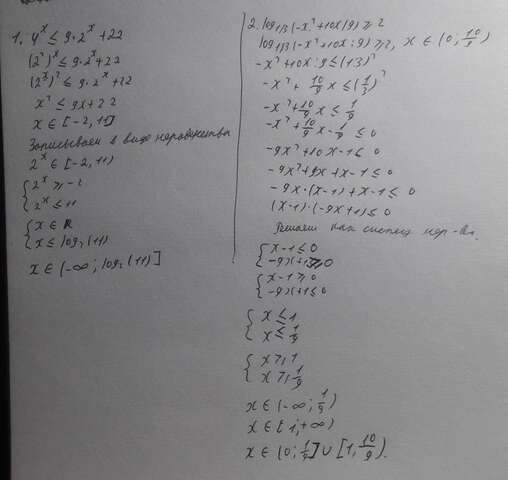 1. 4^x ≤ 9·2^x+22
(2²)^x ≤ 9·2^x+22
(2^x)² ≤ 9·2^x+22
x² ≤ 9x+22
x ∈ [-2, 11]
Записываем в виде неравенства
2^x ∈ [-2, 11)
{ 2^x ≥ -2
2^x ≤ 11
{ x ∈ R
x ≤ log₂(11)
x ∈ (-∞; log₂(11)]
2. log1/3(-x²+10x/9) ≥ 2
log1/3(-x²+10x:9) ≥ 2, x ∈ (0, 10/9)
-x²+10x:9 ≤ (1/3)²
-x²+10/9 x ≤ (1/3)²
-x²+10/9 x ≤ 1/9
-x²+10/9 x - 1/9 ≤ 0
-9x²+10x-1 ≤ 0
-9x²+9x+x-1 ≤ 0
-9x·(x-1)+x-1 ≤ 0
(x-1)·(-9x+1) ≤ 0
Решаем как систему нер-в.
{ x-1 ≤ 0
-9x+1 ≥ 0
{ x-1 ≥ 0
-9x+1 ≤ 0
{ x ≤ 1
x ≤ 1/9
{ x ≥ 1
x ≥ 1/9
x ∈ (-∞; 1/9)
x ∈ [1, +∞)
x ∈ (0; 1/9] ∪ [1, 10/9).